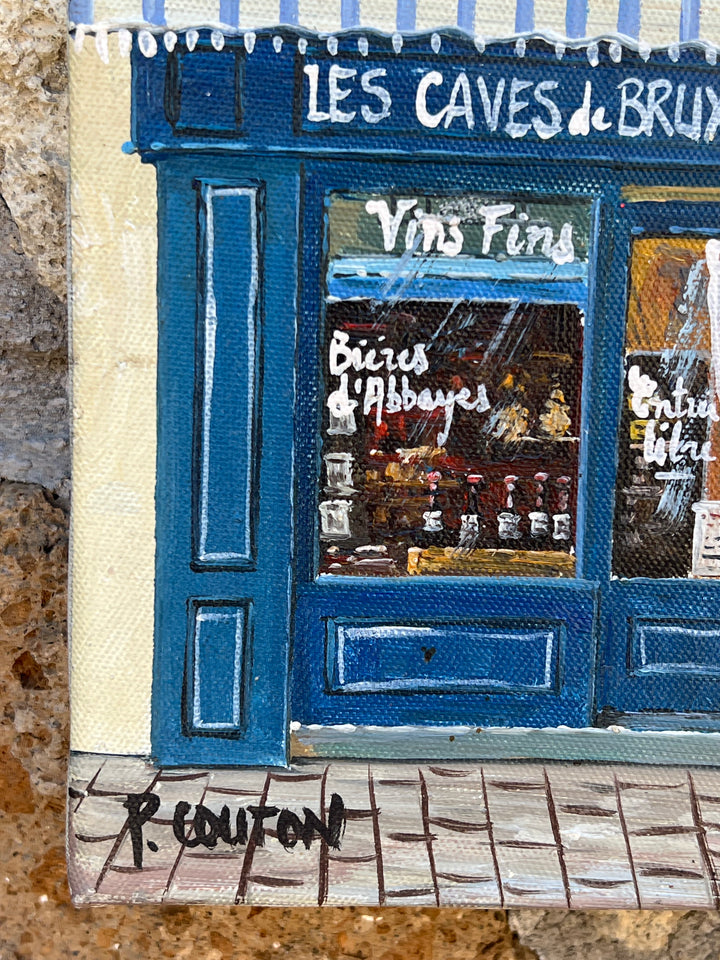 LES CAVES de BRUX
Vins Fins
Bières
d'Abbayes
Entrée
libre
P. COUTON